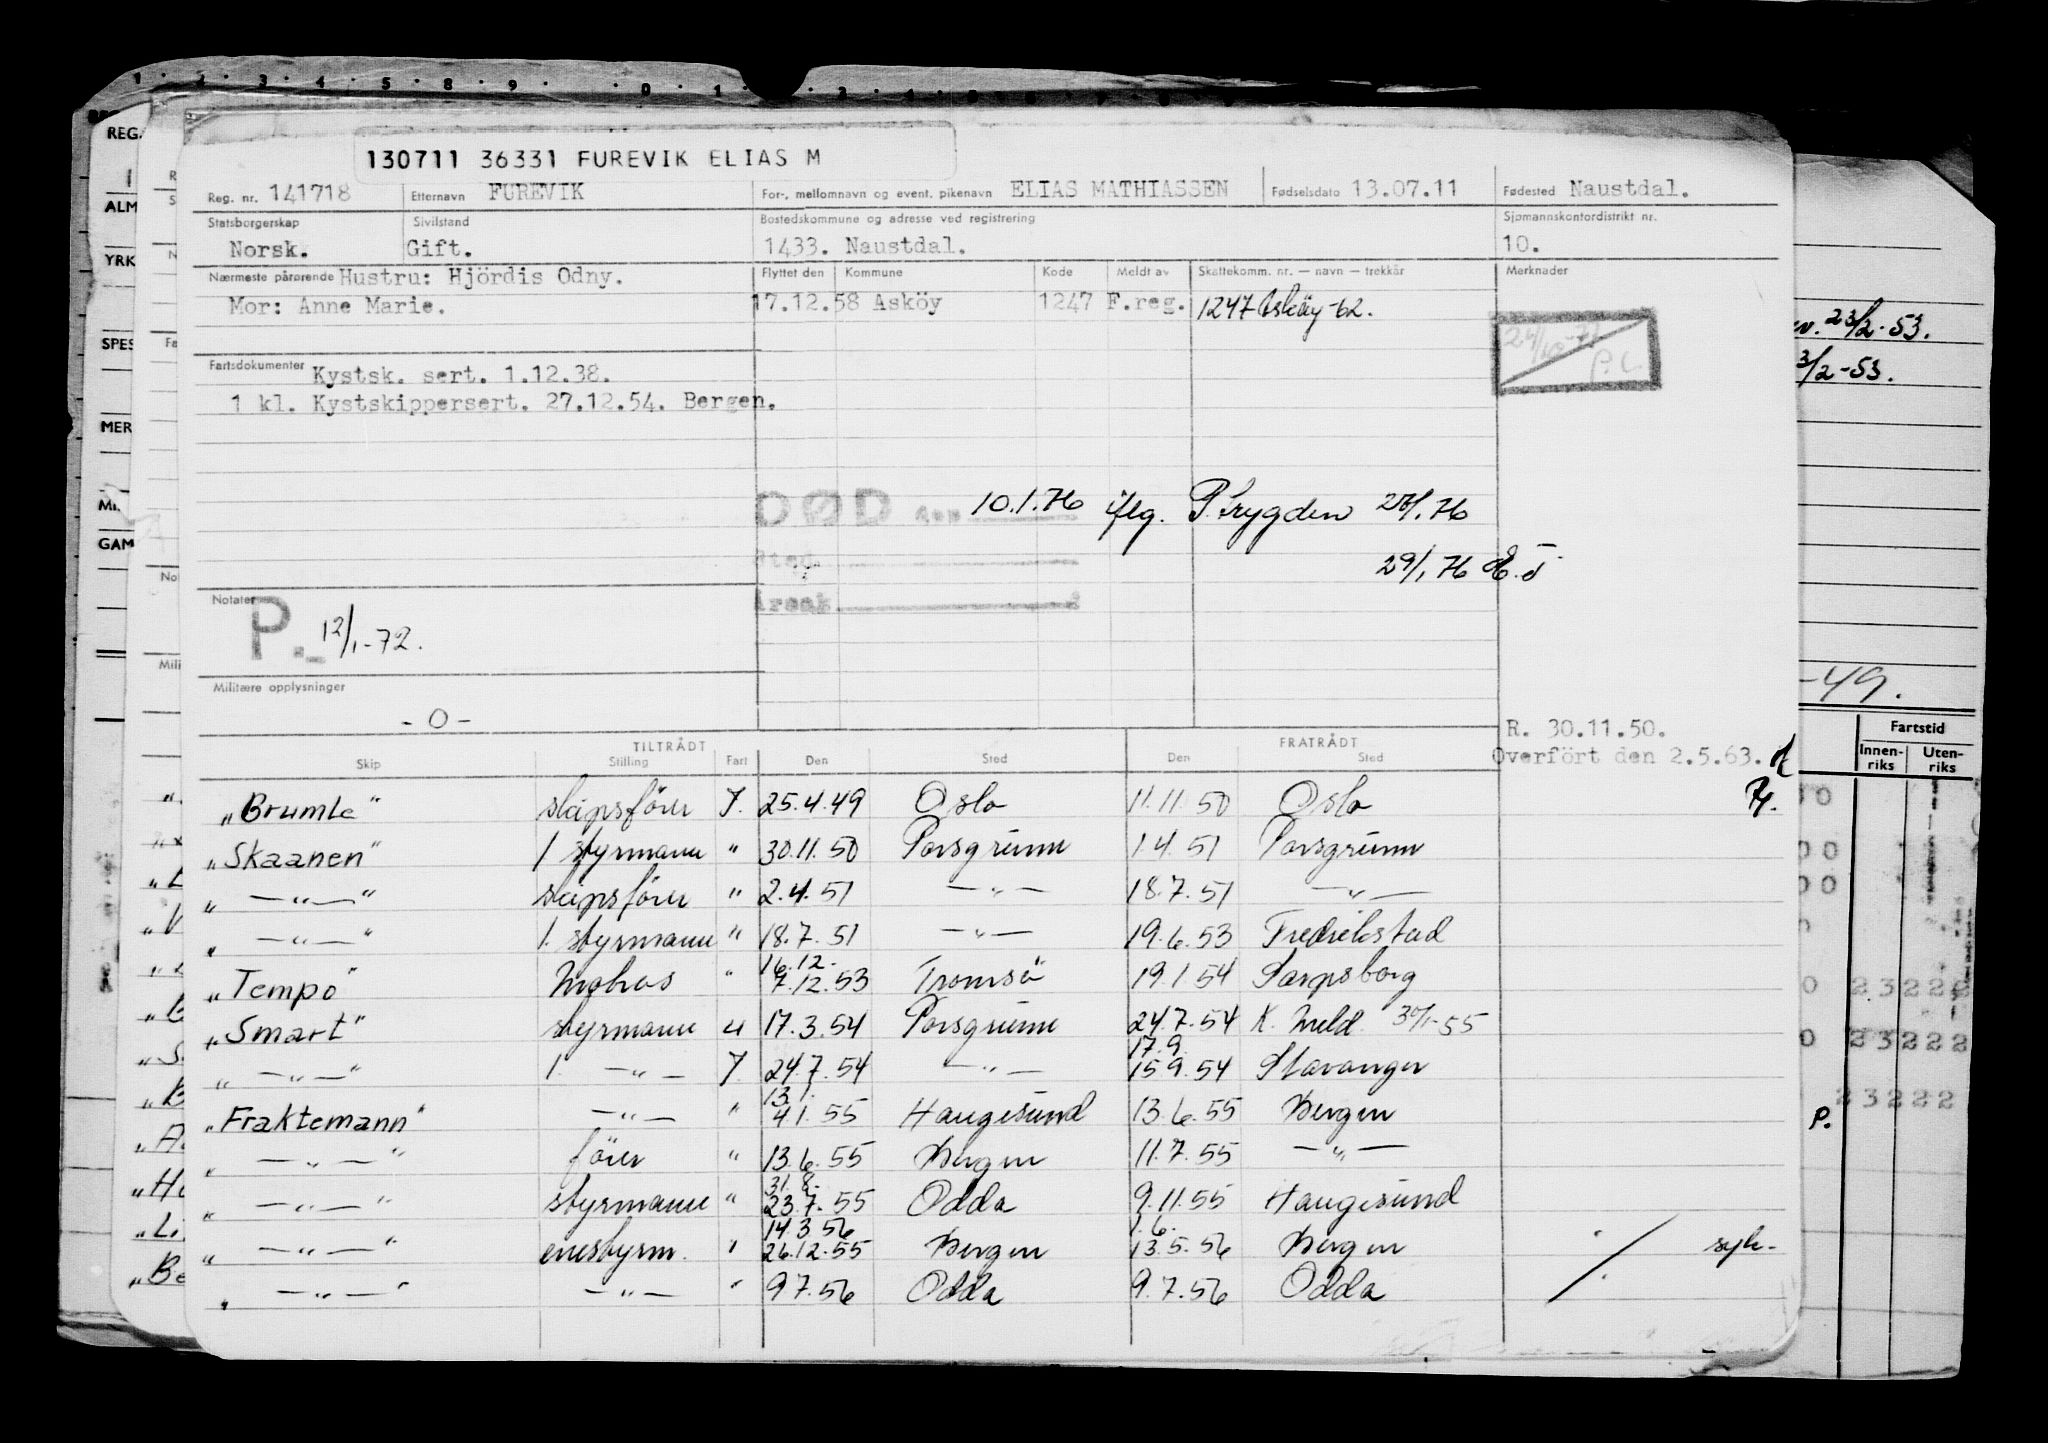 130711 36331 FUREVIK ELIAS M
Reg. nr. 141718 Etternavn FUREVIK For-, mellomnavn og event. pikenavn ELIAS MATHIASSEN Fødselsdato 13.07.11 Fødested Naustdal.
Statsborgerskap Sivilstand Bostedskommune og adresse ved registrering Sjømannskontordistrikt nr.
Norsk. Gift. 1433. Naustdal. 10.
Nærmeste pårørende Hustru: Hjördis Odny. Flyttet den Kommune Kode Meldt av Skattekomm. nr. — navn — trekkår Merknader
Mor: Anne Marie. 17.12.58 Asköy 1247 F.reg. 1247 Asköy-62.
Fartsdokumenter Kystsk. sert. 1.12.38.
1 kl. Kystskippersert. 27.12.54. Bergen.
DØD den 10.1.76 iflg. P.trygden
Sted
29/1 76
Årsak
Notater
P. 12/1-72.
Militære opplysninger
- 0 -
R. 30.11.50.
Overfört den 2.5.63.
TILTRÅDT FRATRÅDT
Skip Stilling Fart Den Sted Den Sted
„Brumle" skipsförer 25.4.49 Oslo 11.11.50 Oslo
„Skaanen" 1 styrmann " 30.11.50 Porsgrunn 1.4.51 Porsgrunn
„ —"— " skipsförer " 2.4.51 —"— 18.7.51 —"—
„ —"— " 1. styrmann " 18.7.51 —"— 19.6.53 Fredrikstad
16.12.
„Tempo" " 7.12.53 Tromsö 19.1.54 Sarpsborg
„Smart" styrmann u 17.3.54 Porsgrunn 24.7.54 K. Meld. 55
17.9.
„ —"— " 1. —"— 24.7.54 —"— 15.9.54 Stavanger
13.1.
„Fraktemann" —"— " 4.1.55 Haugesund 13.6.55 Bergen
„ —"— " förer " 13.6.55 Bergen 11.7.55 —"—
31.8.
„ —"— " styrmann " 23.7.55 Odda 9.11.55 Haugesund
14.3.56 1.6.
„ —"— " enestyrm. " 26.12.55 Bergen 13.5.56 Bergen syk.
„ —"— " —"— " 9.7.56 Odda 9.7.56 Odda
REG.
ALM
YRK
SPES
MER
GAM
Mili
23/2-53.
3/2-53.
-49.
Fartstid
Innen-riks Uten-riks
P.